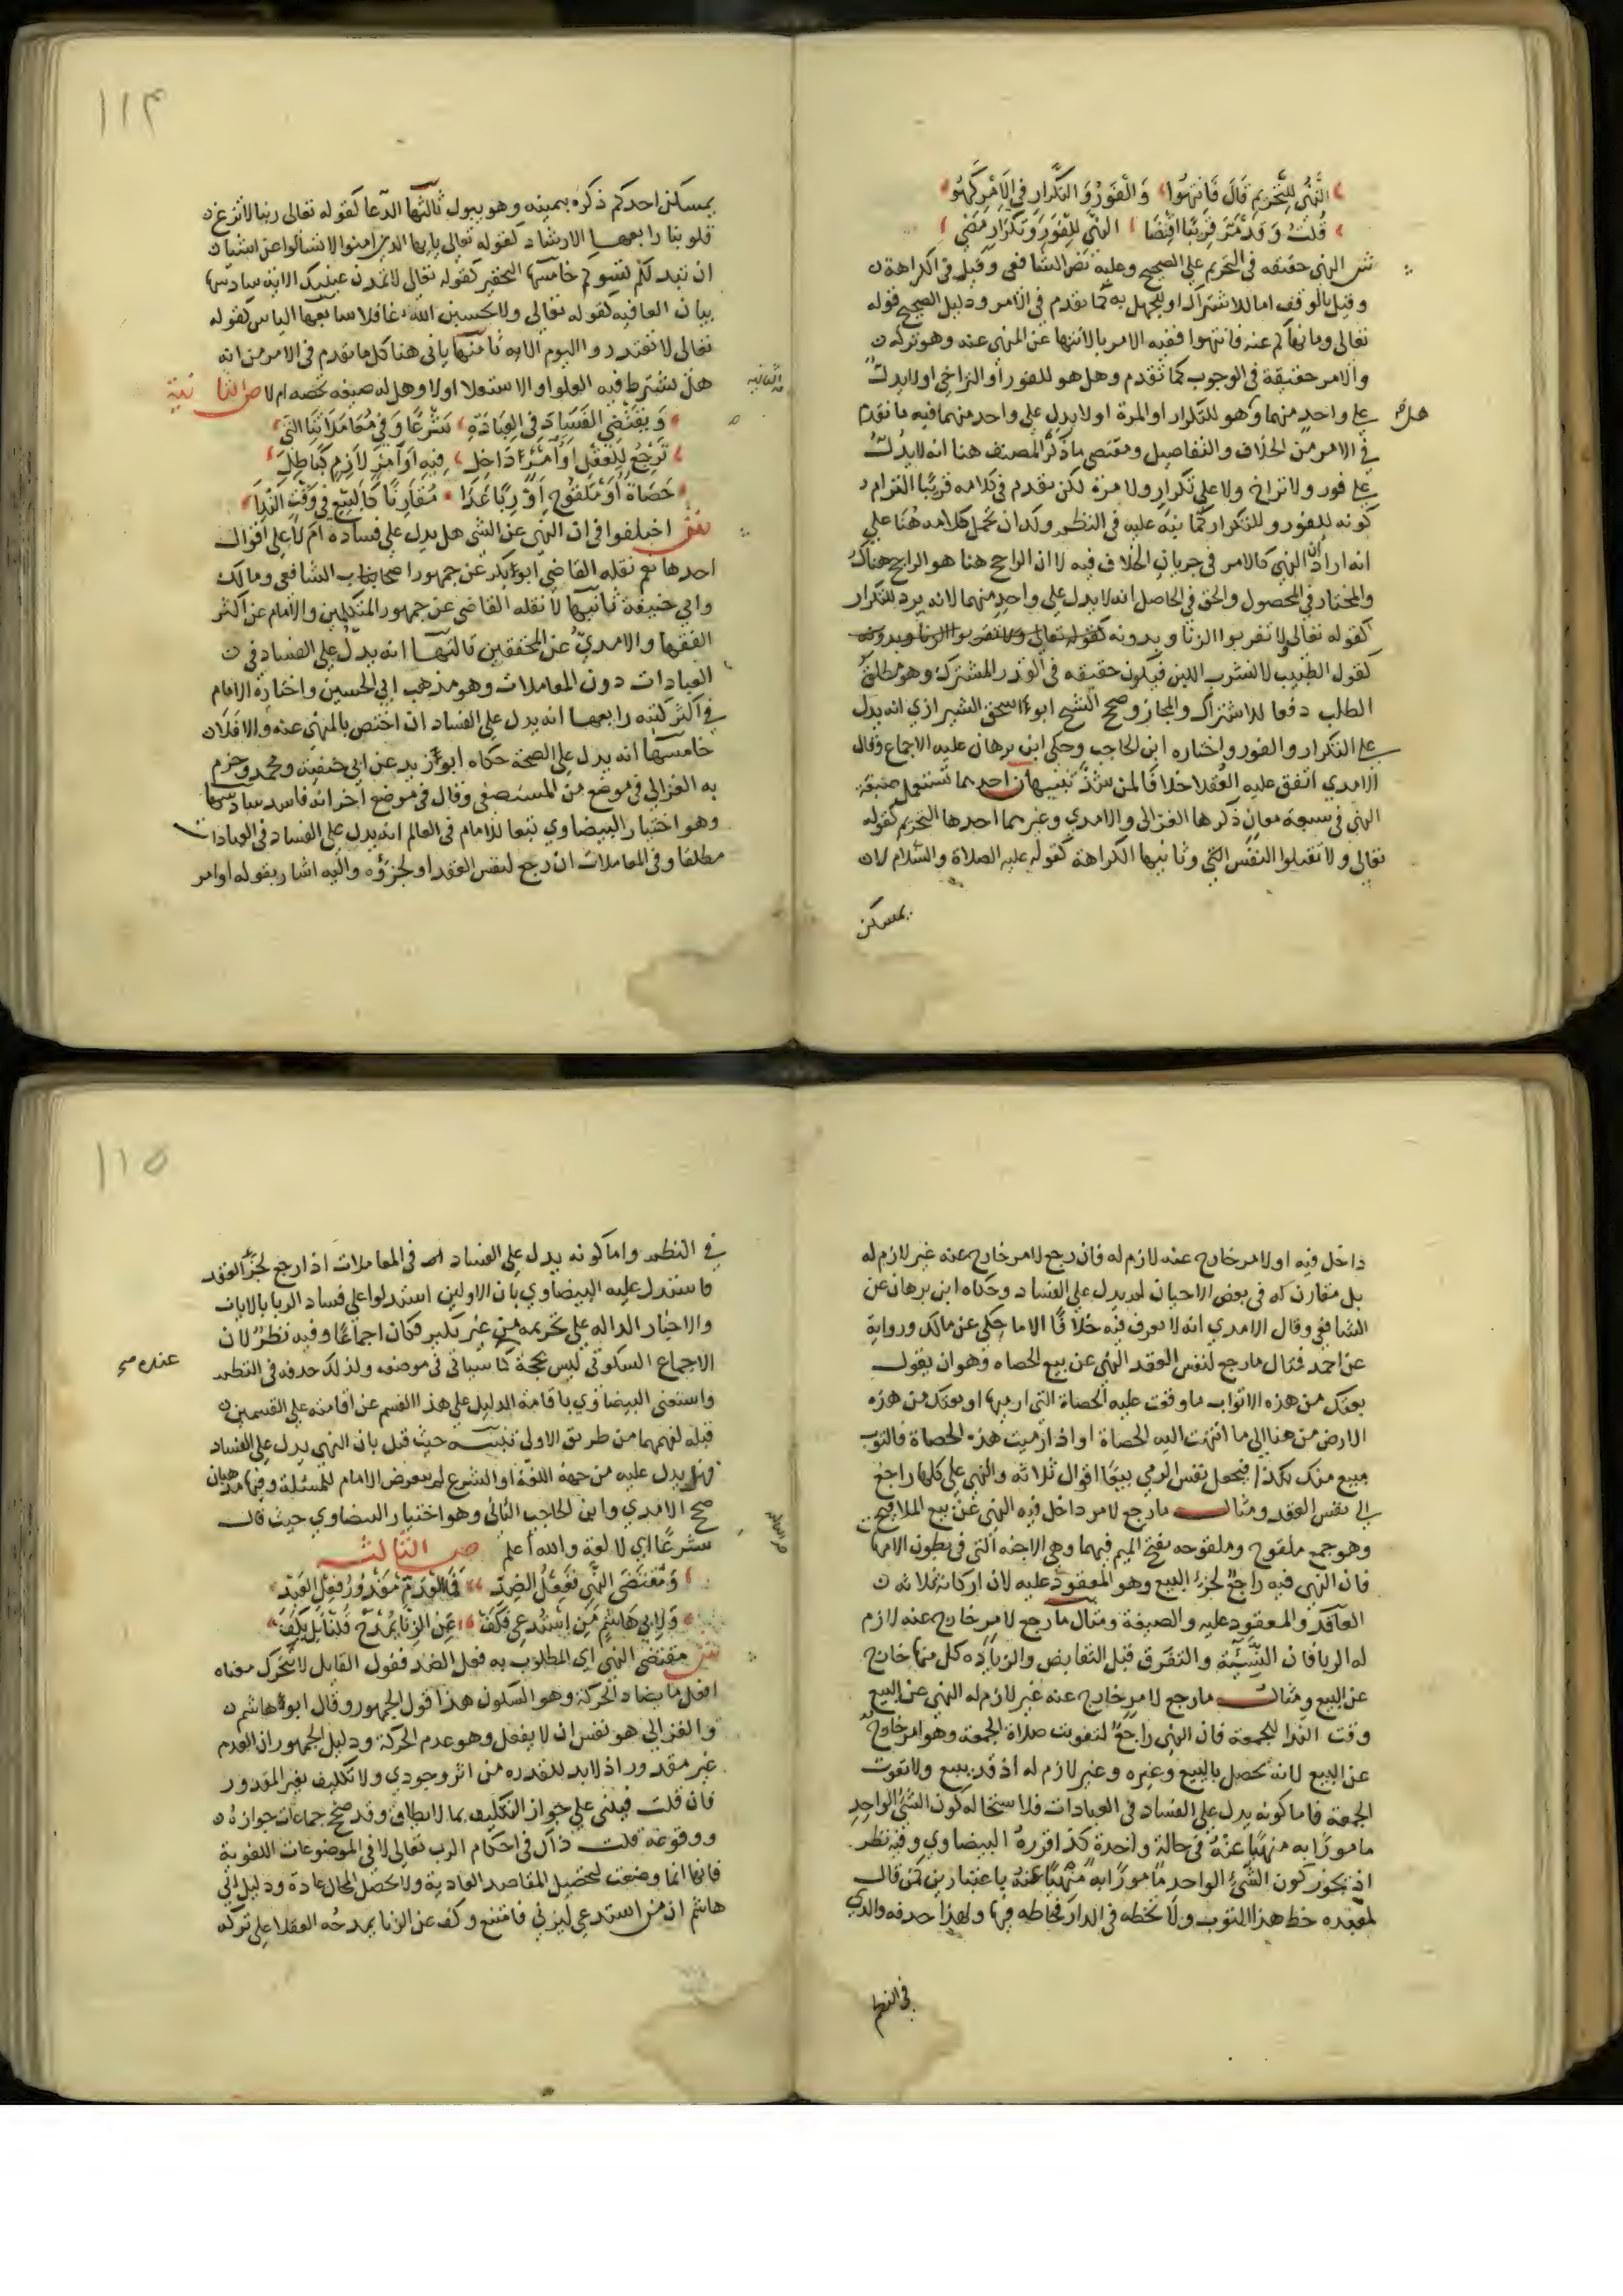 النَّهْيُ لِلتَّحْرِيمِ قَالَ فَانْتَهُوا وَالْفَوْرُ وَالتَّكْرَارُ فِي الْأَمْرِ
قُلْتُ وَقَدْ مَرَّ قَرِيبًا اقْتَضَا النَّهْي لِلْفَوْرِ وَتَكْرَارٍ مَضَى
ش النهي حقيقه في التحريم علي الصحيح وعليه نص الشافعي وقيل في الكراهة
وقيل بالوقف اما للاشتراك او للجهل به كما تقدم في الامر ودليل الصحيح قوله
تعالى وما نهاكم عنه فانتهوا ففيه الامر بالانتها عن المنهي عنه وهو تركه
والامر حقيقة في الوجوب كما تقدم وهل هو للفور أو التراخي او لا يدل
علي واحد منهما وهل هو للتكرار او المرة او لا يدل علي واحد منهما فيه ما تقدم
في الامر من الخلاف والتفاصيل ومقتضي ما ذكره المصنف هنا انه لا يدل
علي فور ولا تراخ ولا علي تكرار ولا مرة لكن تقدم في كلامه قريبا التزام
كونه للفور وللتكرار كما نبه عليه في النظم ولك ان تحمل كلامه هنا علي
انه اراد ان النهي كالامر في جريان الخلاف فيه لا ان الراجح هنا هو الراجح هناك
والمختار في المحصول والحق في الحاصل انه لا يدل علي واحد منهما لانه يرد للتكرار
كقوله تعالي ولا تقربوا الزنا وبدونه كقوله تعالى ولا تقربوا الزنا وبدونه
كقول الطبيب لا تشرب اللبن فيكون حقيقه في القدر المشترك وهو مطلق
الطلب دفعا للاشتراك والمجاز وصحح الشيخ ابو اسحق الشيرازي انه يدل
علي التكرار والفور واختاره ابن الحاجب وحكي ابن برهان عليه الاجماع وقال
الامدي اتفق عليه العقلا خلافا لمن شذ تنبيهان احدهما تستعمل صيغة
النهي في سبعة معان ذكرها الغزالي والامدي وغيرهما احدها التحريم كقوله
تعالى ولا تقتلوا النفس التي وثانيها الكراهة كقوله عليه الصلاة والسلام لا
يمسكن
١١٤
يمسكن احدكم ذكره بيمينه وهو يبول ثالثها الدعا كقوله تعالى ربنا لا تزغ
قلوبنا رابعها الارشاد كقوله تعالي يايها الذين امنوا لا تسالوا عن اشيا
ان تبد لكم تسوكم خامسها التحقير كقوله تعالى لا تمدن عينيك الاية سادسها
بيان العاقبه كقوله تعالي ولا تحسبن الله غافلا سابعها الياس كقوله
تعالى لا تعتذروا اليوم الايه ثامنها ياتي هنا كل ما تقدم في الامر من انه
هل يشترط فيه العلو او الاستعلا او لا وهل له صيغه تخصه ام لا ص الثانية
وَيَقْتَضِي الفَسَادَ فِي الْعِبَادَةِ شَرْعًا وَفِي مُعَامَلَاتِنَا الَّتِي
تَرْجِعُ لِلْعَقْدِ أَوْ أَمْرٍ دَاخِل فِيهِ أَوْ أَمْرٍ لَازِمٍ كَبَاطِلِ
حَصَاةٍ أَوْ مَلْقُوحٍ أَوْ رِبًا غَدَا مُقَارِنًا كَالبَيْعِ فِي وَقْتِ النِّدَا
ش اختلفوا في ان النهي عن الشي هل يدل علي فساده أم لا علي اقوال
احدها نعم نقله القاضي ابو بكر عن جمهور اصحاب الشافعي ومالك
وابي حنيفة ثانيها لا نقله القاضي عن جمهور المتكلمين والامام عن اكثر
الفقها والامدي عن المحققين ثالثها انه يدل علي الفساد في
العبادات دون المعاملات وهو مذهب ابي الحسين واختاره الامام
في اكثر كتبه رابعها انه يدل علي الفساد ان اختص بالمنهي عنه والا فلا
خامسها انه يدل علي الصحة حكاه ابو زيد عن ابي حنيفة ومحمد وجزم
به الغزالي في موضع من المستصفي وقال في موضع اخر انه فاسد سادسها
وهو اختيار البيضاوي تبعا للامام في المعالم انه يدل علي الفساد في العبادات
مطلقا وفي المعاملات ان رجع لنفس العقد او لجزؤه واليه اشار بقوله او امر
داخل فيه او لامر خارج عنه لازم له فان رجع لامر خارج عنه غير لازم له
بل مقارن له في بعض الاحيان لم يدل علي الفساد وحكاه ابن برهان عن
الشافعي وقال الامدي انه لا يعرف فيه خلافا الا ما حكي عن مالك ورواية
عن احمد فمثال ما رجع لنفس العقد النهي عن بيع الحصاه وهو ان يقول
بعتك من هذه الاثواب ما وقعت عليه الحصاة التي ارميها او بعتك من هذه
الارض من هنا الي ما انتهت اليه الحصاة او اذا رميت هذه الحصاة فالثوب
مبيع منك بكذا فيجعل نفس الرمي بيعا اقوال ثلاثه والنهي علي كلها راجع
الي نفس العقد ومثال ما رجع لامر داخل فيه النهي عن بيع الملاقيح
وهو جمع ملقوح وملقوحه بفتح الميم فيهما وهي الاجنه التي في بطون الامهات
فان النهي فيه راجع لجزء البيع وهو المعقود عليه لان اركانه ثلاثه
العاقد والمعقود عليه والصيغة ومثال ما رجع لامر خارج عنه لازم
له الربا فان النسيئة والتفرق قبل التقابض والزياده كل منها خارج
عن البيع ومثال ما رجع لامر خارج عنه غير لازم له النهي عن البيع
وقت الندا للجمعة فان النهي راجع لتفويت صلاة الجمعة وهو امر خارج
عن البيع لانه يحصل بالبيع وغيره وغير لازم له اذ قد يبيع ولا تفوت
الجمعة فاما كونه يدل علي الفساد في العبادات فلاستحاله كون الشئ الواحد
مامورا به منهيا عنه في حالة واحدة كذا قرره البيضاوي وفيه نظر
اذ يجوز كون الشئ الواحد مامورا به منهيا عنه باعتبارين كمن قال
لعبده خط هذا الثوب ولا تخطه في الدار فخاطه فيها ولهذا حذفه والدي
في النظم
١١٥
في النظم واما كونه يدل علي الفساد في المعاملات اذا رجع لجزء العقد
فاستدل عليه البيضاوي بان الاولين استدلوا علي فساد الربا بالايات
والاخبار الداله علي تحريمه من غير نكير فكان اجماعا وفيه نظر لان
الاجماع السكوتي ليس بحجة كما سياتي في موضعه ولذلك حذفه في النظم
عنده صح
واستغني البيضاوي باقامة الدليل علي هذا القسم عن اقامته علي القسمين
قبله لفهمهما من طريق الاولي تنبيه حيث قيل بان النهي يدل علي الفساد
فهل يدل عليه من جهة اللغة او الشرع لم يتعرض الامام للمسئلة وفيها مذهبان
صحح الامدي وابن الحاجب الثاني وهو اختيار البيضاوي حيث قال
شرعا اي لا لغة والله أعلم ص الثالثه
وَمُقْتَضَى النَّهْي فِعْلُ الضِدِّ فَالعَدَمُ مَقْدُورُ فِعْلِ العَبْدِ
وَلِأَبِي هَاشِمٍ مَنِ اسْتُدْعِي فَكَفّ عَنِ الزِّنَا يُمْدَحُ قُلْنَا بَلْ يَكُفّ
ش مقتضي النهي اي المطلوب به فعل الضد فقول القايل لا تتحرك معناه
افعل ما يضاد الحركة وهو السكون هذا قول الجمهور وقال ابو هاشم
والغزالي هو نفس ان لا يفعل وهو عدم الحركة ودليل الجمهور ان العدم
غير مقدور اذ لا بد للقدره من اثر وجودي ولا تكليف بغير المقدور
فان قلت فيبني علي جواز التكليف بما لا يطاق وقد صحح جماعات جوازه
ووقوعه قلت ذاك في احكام الرب تعالى لا في الموضوعات اللغوية
فانها انما وضعت لتحصيل المقاصد العادية ولا تحصل المحال عادة ودليل ابي
هاشم ان من استدعي ليزني فامتنع وكف عن الزنا يمدحه العقلا علي تركه